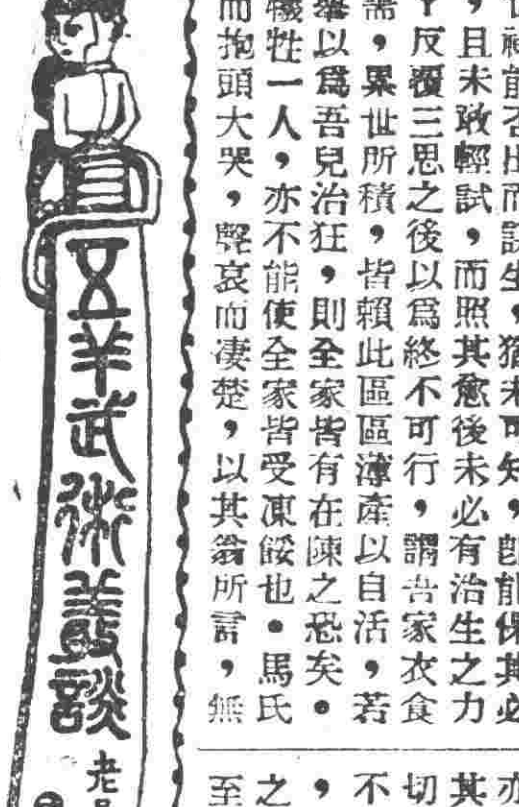 生，猶未可知，
，且未敢輕試，而照其愈後未必有治生之力
反覆三思之後以爲終不可行，謂吾家衣食
需，累世所積，皆賴此區區薄產以自活，若
舉以爲吾兒治狂，則全家皆有在陳之恐矣。
犧牲一人，亦不能使全家皆受凍餒也。馬氏
而抱頭大哭，聲哀而凄楚，以其翁所言，無
其
切
不
，
之
至
五羊武術叢談
老